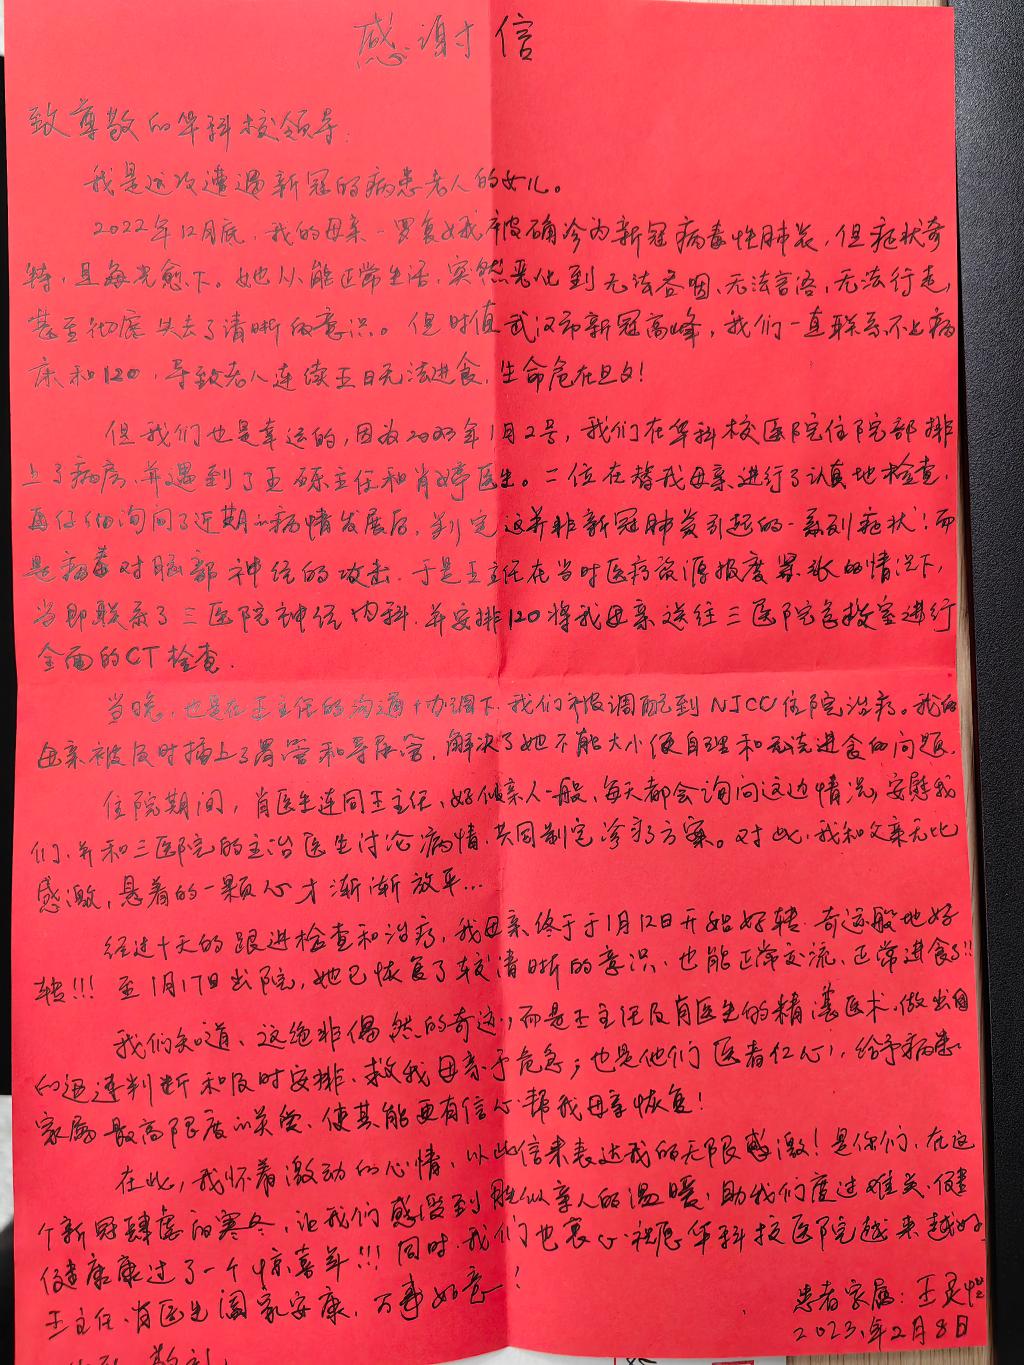 感谢信
致尊敬的华科校领导:
我是这次遭遇新冠的病患老人的女儿。
2022年12月底,我的母亲-罗复娥被确诊为新冠病毒性肺炎,但症状奇
特,且每况愈下。她从能正常生活,突然恶化到无法吞咽、无法言语,无法行走,
甚至彻底失去了清晰的意识。但时值武汉市新冠高峰,我们一直联系不上病
床和120,导致老人连续五日无法进食,生命危在旦夕!
但我们也是幸运的,因为2023年1月2号,我们在华科校医院住院部排
上了病房,并遇到了王硕主任和肖婷医生。二位在替我母亲进行了认真地检查,
再仔细询问了近期的病情发展后,判定这并非新冠肺炎引起的一系列症状!而
是病毒对脑部神经的攻击.于是王主任在当时医疗资源极度紧张的情况下,
当即联系了三医院神经内科.并安排120将我母亲送往三医院急救室进行
全面的CT检查.
当晚,也是在王主任的沟通+协调下,我们被调配到NICU住院治疗。我的
母亲被及时插上了胃管和导尿管,解决了她不能大小便自理和无法进食的问题.
住院期间,肖医生连同王主任,好似亲人一般,每天都会询问这边情况,安慰我
们,并和三医院的主治医生讨论病情,共同制定诊疗方案。对此,我和父亲无比
感激,悬着的一颗心才渐渐放平...
经过十天的跟进检查和治疗,我母亲终于于1月12日开始好转.奇迹般地好
转!!!至1月17日出院,她已恢复了较清晰的意识、也能正常交流、正常进食了!!
我们知道、这绝非偶然的奇迹,而是王主任及肖医生的精湛医术,做出
的迅速判断和及时安排,救我母亲于危急;也是他们医者仁心,给予病患
家属最高限度的关爱、使其能更有信心帮我母亲恢复!
在此,我怀着激动的心情,以此信来表达我的无限感激!是你们,在这
个新冠肆虐的寒冬,让我们感受到胜似亲人的温暖,助我们度过难关,健
健康康过了一个惊喜年!!!同时,我们也衷心祝愿华科校医院越来越好,
王主任、肖医生阖家安康,万事如意!
患者家属:王灵
2023年2月8日
敬礼